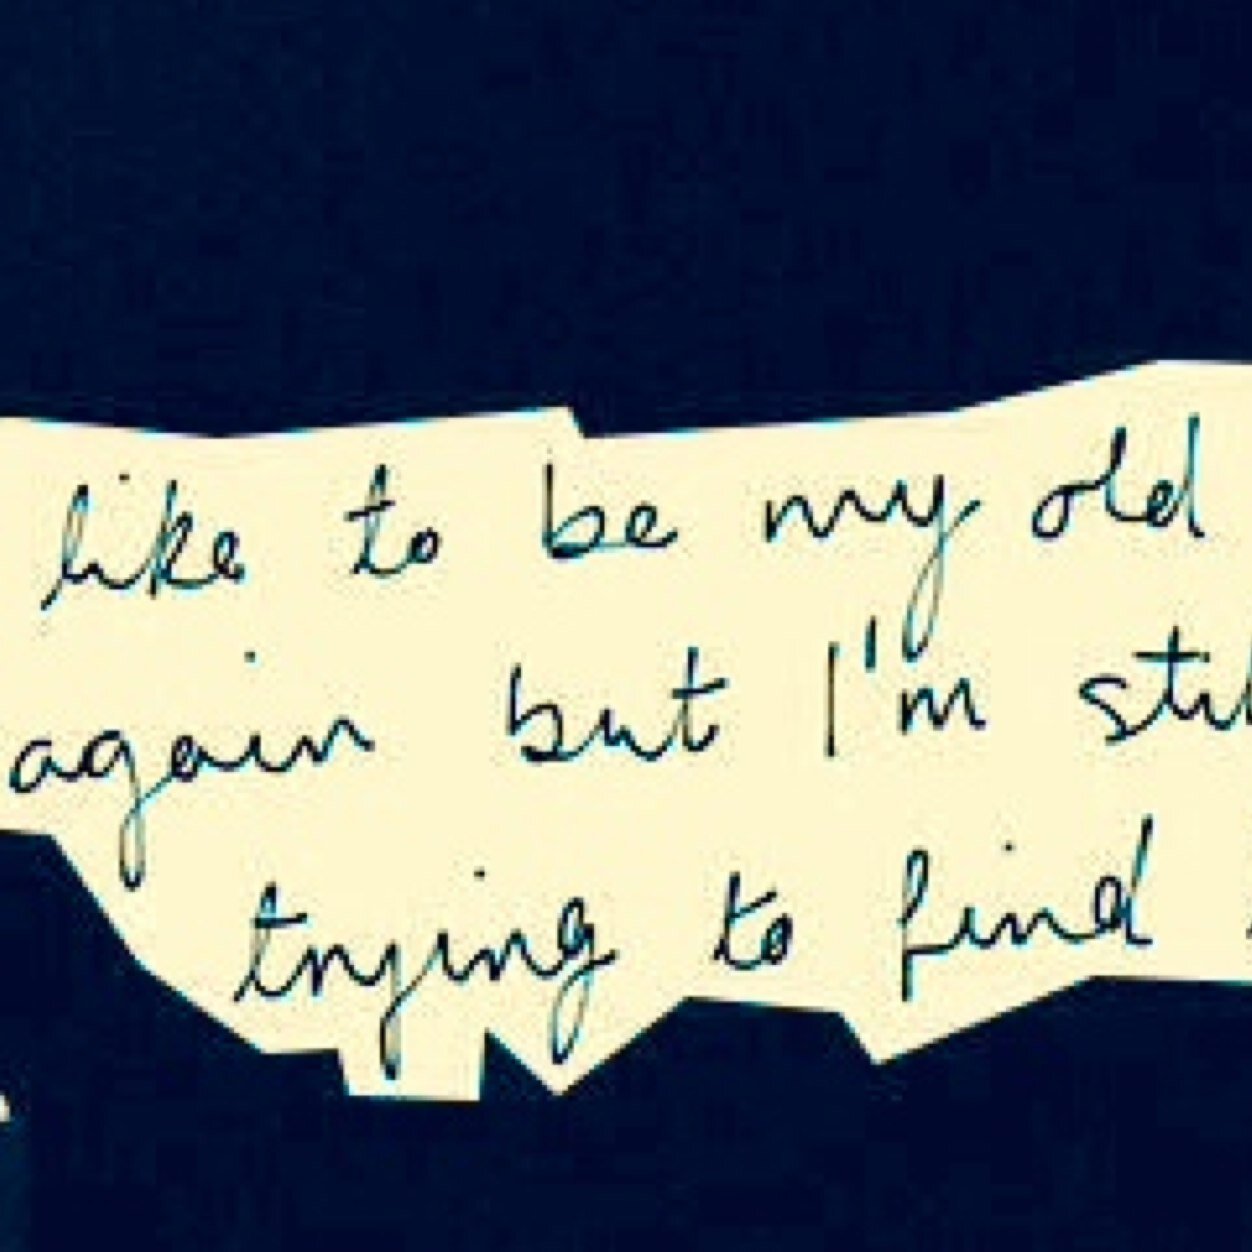 like to be my old
again but I'm stil
trying to find